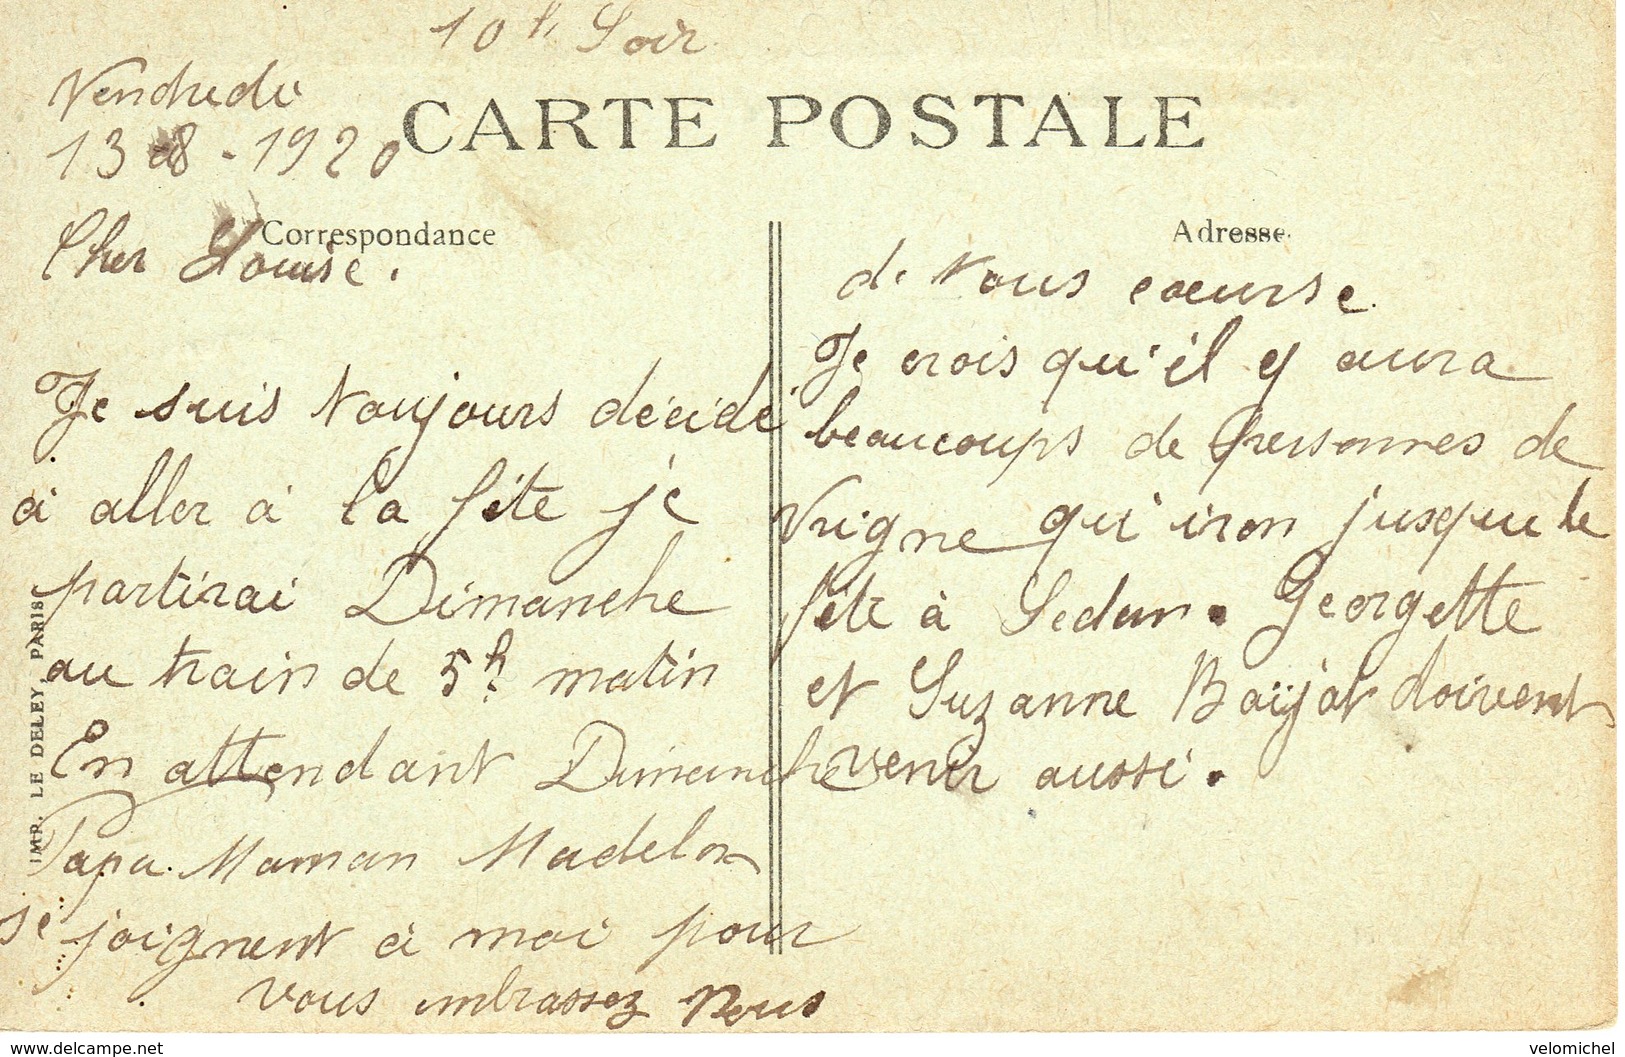 10 h Soir
Vendredi
13-8-1920
CARTE POSTALE
Correspondance
Adresse
Cher Louise.
Je suis toujours décidé
à aller à la fête je
partirai Dimanche
au train de 5h matin
En attendant Dimanche
Papa. Maman Madelon
se joignent à moi pour
vous embrassez
de tous coeurse.
Je crois qu'il y aura
beaucoups de personnes de
Vrigne qui iron jusque le
fête à Sedan. Georgette
et Suzanne Baijot doivent
venir aussi.
IMP. LE DELEY, PARIS
www.delcampe.net
velomichel